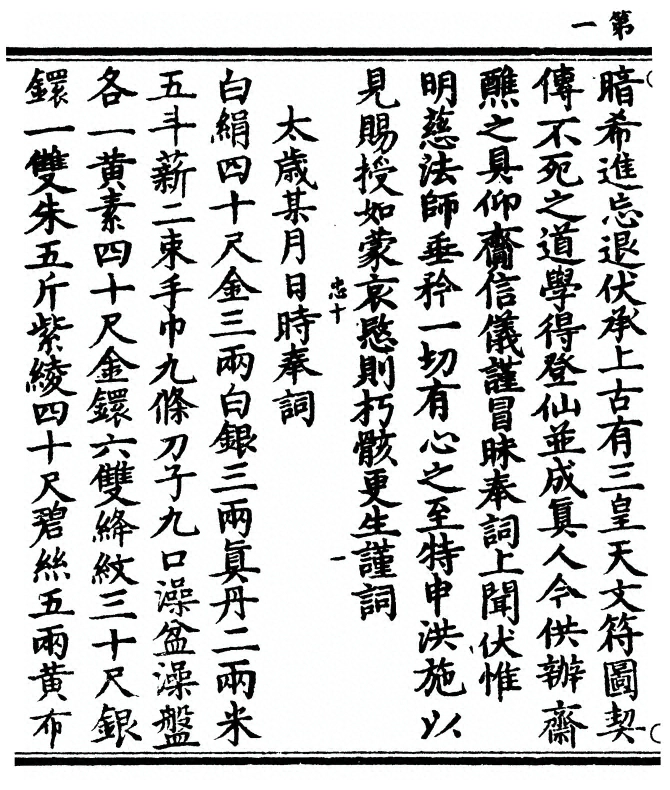 第一
暗希進忘退伏承上古有三皇天文符圖契
傳不死之道學得登仙並成眞人今供辦齋
醮之具仰齎信儀謹冒昧奉詞上聞伏惟
明慈法師垂矜一切有心之至特申洪施以
見賜授如蒙哀愍則朽骸更生謹詞
忠十
一
太歲某月日時奉詞
白絹四十尺金三兩白銀三兩眞丹二兩米
五斗薪二束手巾九條刀子九口澡盆澡盤
各一黄素四十尺金鐶六雙絳紋三十尺銀
鐶一雙朱五斤紫綾四十尺碧絲五兩黄布